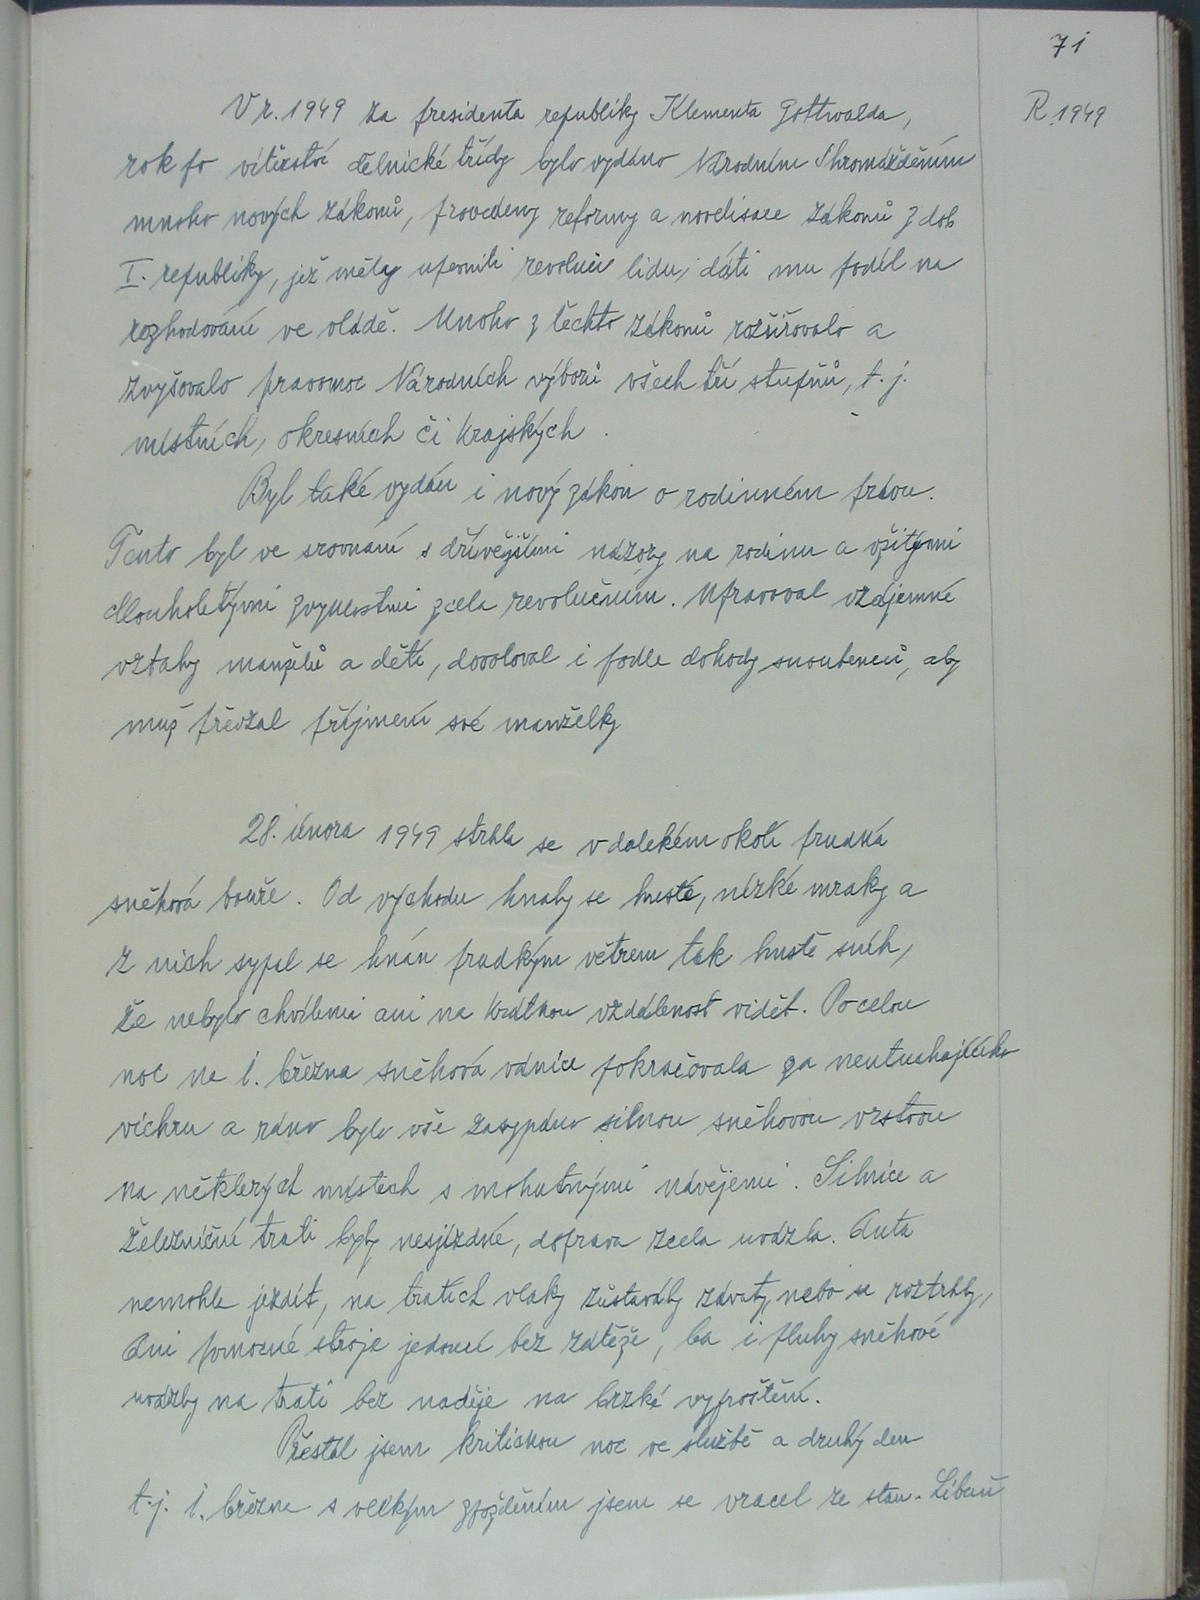 71
R. 1949
V r. 1949 za presidenta republiky Klementa Gottwalda,
rok po vítězství dělnické třídy bylo vydáno Národním Shromážděním
mnoho nových zákonů, provedeny reformy a novelisace zákonů z dob
I. republiky, jež měly upevniti revoluci lidu, dáti mu podíl na
rozhodování ve vládě. Mnoho z těchto zákonů rozšiřovalo a
zvyšovalo pravomoc Národních výborů všech tří stupňů, t. j.
místních, okresních či krajských.
Byl také vydán i nový zákon o rodinném právu.
Tento byl ve srovnání s dřívějšími názory na rodinu a vžitými
dlouholetými zvyklostmi zcela revolučním. Upravoval vzájemné
vztahy manželů a dětí, dovoloval i podle dohody snoubenců, aby
muž převzal příjmení své manželky
28. února 1949 strhla se v dalekém okolí prudká
sněhová bouře. Od východu hnaly se husté, nízké mraky a
z nich sypal se hnán prudkým větrem tak hustě sníh,
že nebylo chvílemi ani na krátkou vzdálenost vidět. Po celou
noc na 1. března sněhová vánice pokračovala za neutuchajícího
vichru a ráno bylo vše zasypáno silnou sněhovou vrstvou
na některých místech s mohutnými návějemi. Silnice a
železniční trati byly nesjízdné, doprava zcela uvázla. Auta
nemohla jezdit, na tratích vlaky zůstávaly záváty, nebo se roztrhly,
ani pomocné stroje jedoucí bez zátěže, ba i pluhy sněhové
uvázly na trati bez naděje na brzké vyproštění.
Přestál jsem kritickou noc ve službě a druhý den
t. j. 1. března s velkým zpožděním jsem se vracel ze stan. Libáň